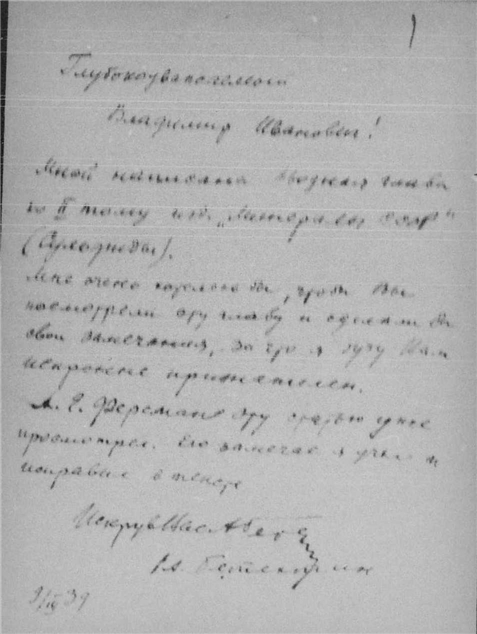 Глубокоуважаемый
Владимир Иванович!
Мной написана вводная глава
ко II тому изд. „Минералы СССР“
(Сульфиды).
Мне очень хотелось бы, чтобы Вы
посмотрели эту главу и сделали бы
свои замечания, за что я буду Вам
искренне признателен.
А. Е. Ферсман эту статью уже
просмотрел. Его замечания я учел и
исправил в тексте
Искр. ув. Вас
9/III 39